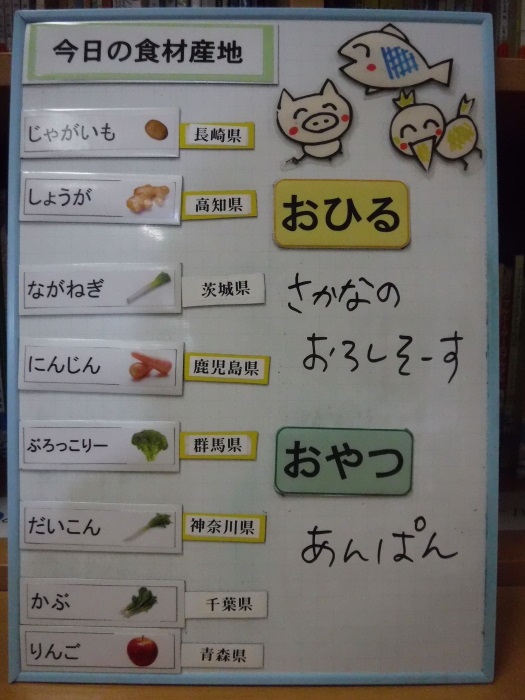 今日の食材産地
じゃがいも 長崎県
しょうが 高知県
ながねぎ 茨城県
にんじん 鹿児島県
ぶろっこりー 群馬県
だいこん 神奈川県
かぶ 千葉県
りんご 青森県
おひる
さかなの
おろしそーす
おやつ
あんぱん